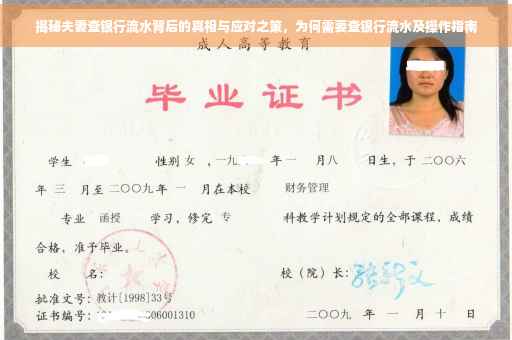 揭秘夫妻查银行流水背后的真相与应对之策，为何需要查银行流水及操作指南
成人高等教育
毕业证书
学生 性别 女 ，一九 年 一 月 八 日生，于 二〇〇六
年 三 月至 二〇〇九 年 一 月在本校 财务管理
专业 函授 学习，修完 专 科教学计划规定的全部课程，成绩
合格，准予毕业。
校 名： 校（院）长：
批准文号：教计[1998]33号
证书编号： 06001310 二〇〇九 年 一 月 十 日